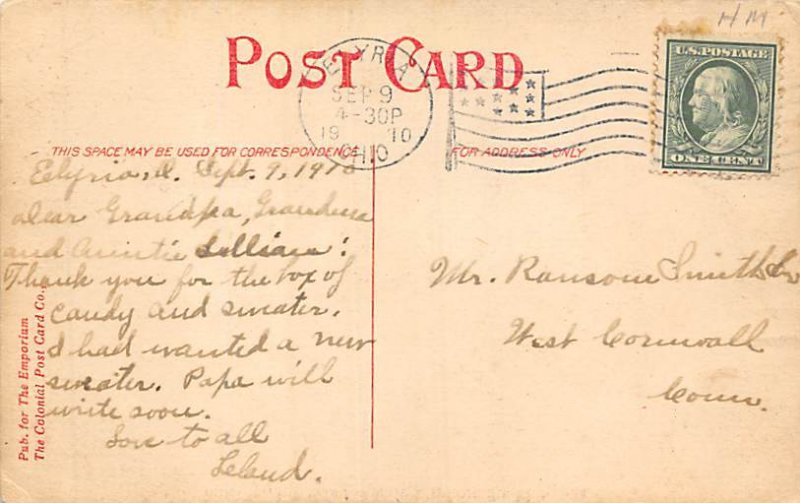 H M
POST CARD
ELYRIA
SEP 9
4-30P
19 10
OHIO
U.S. POSTAGE
ONE CENT
THIS SPACE MAY BE USED FOR CORRESPONDENCE
FOR ADDRESS ONLY
Elyria, O. Sept. 9, 1910
Dear Grandpa, Grandma
and Auntie Lillian:
Thank you for the box of
candy and sweater.
I had wanted a new
sweater. Papa will
write soon.
Love to all
Leland.
Mr. Ransom Smith Sr
West Cornwall
Conn.
Pub. for The Emporium
The Colonial Post Card Co.